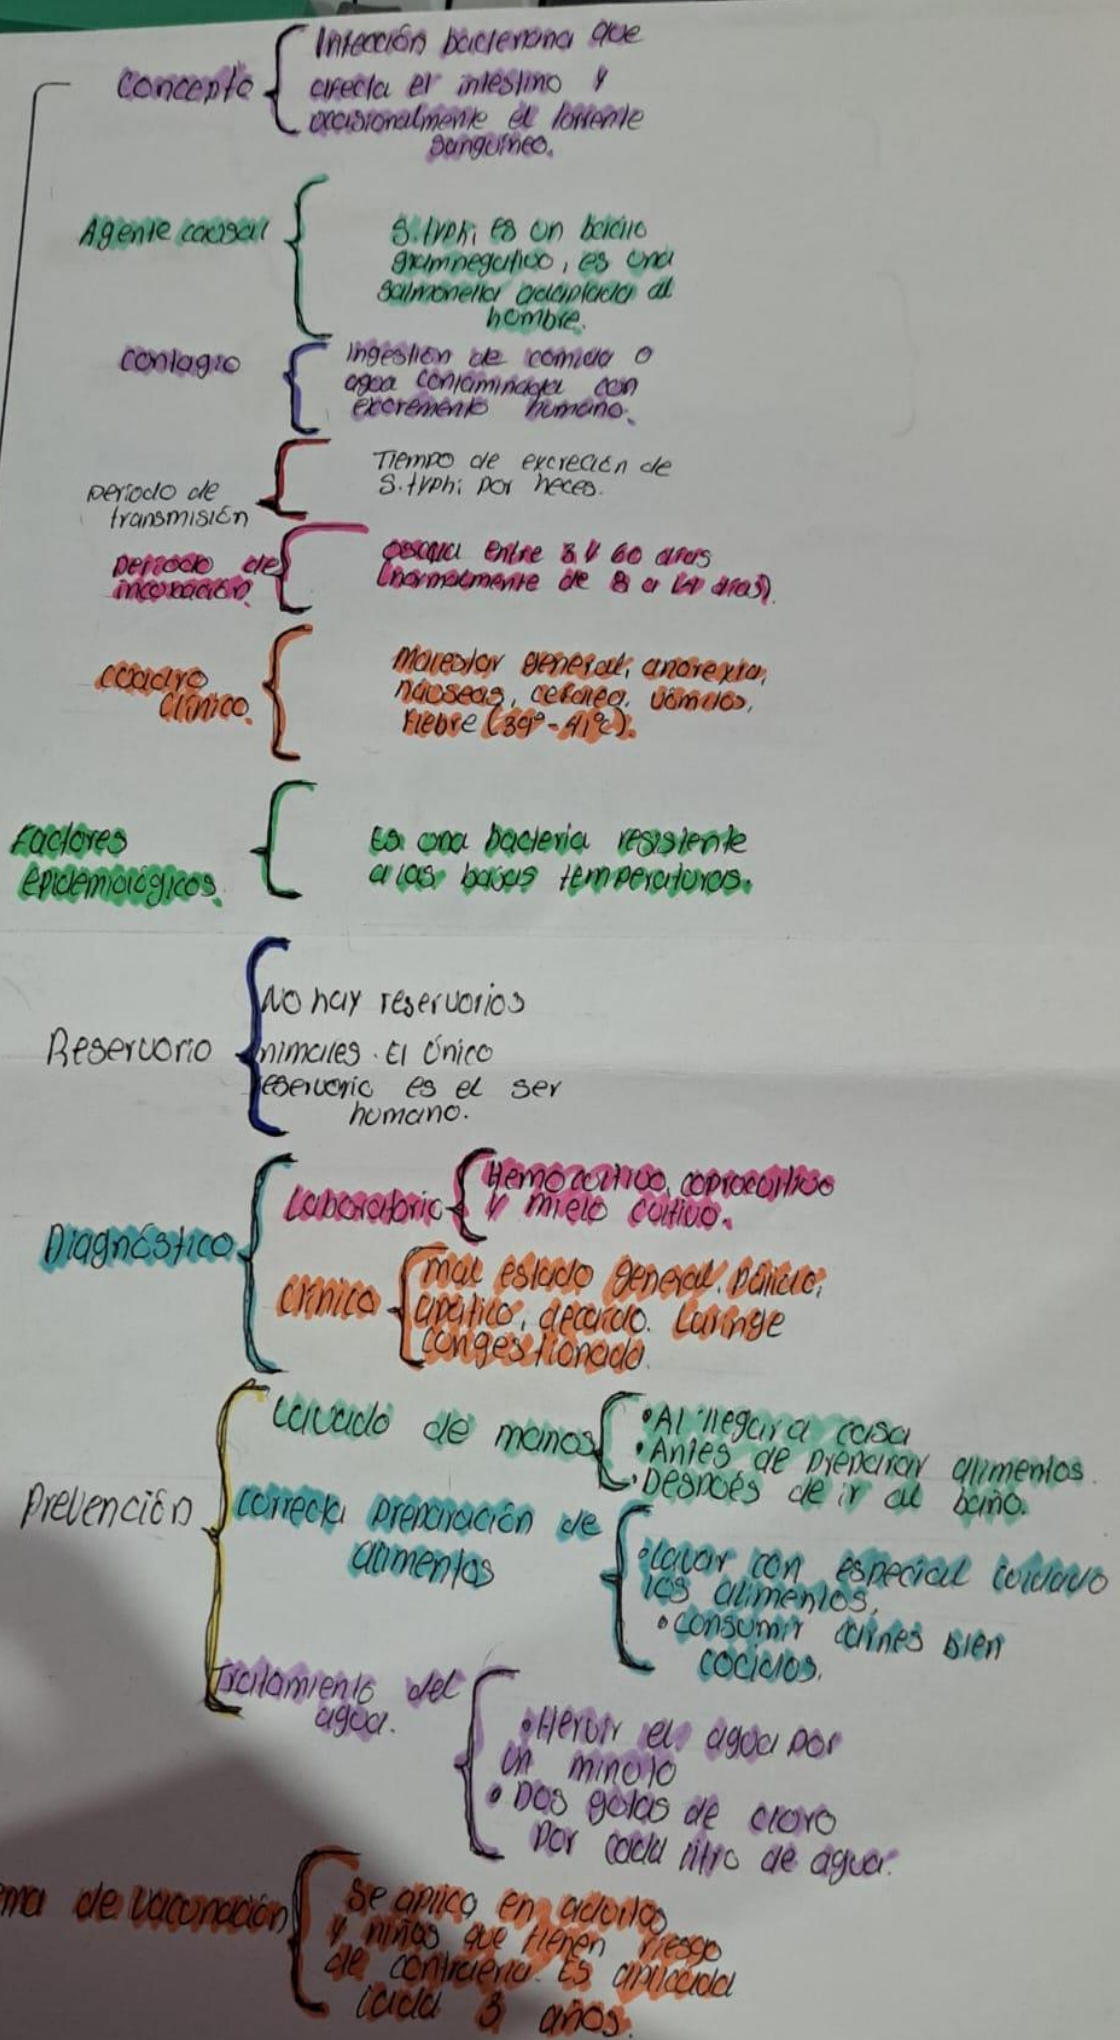 Concepto
Infección bacteriana que
afecta el intestino y
occasionalmente el torrente
sanguíneo.
Agente causal
S.typhi es un bacilo
gramnegativo, es una
salmonella adaptada al
hombre.
contagio
Ingestión de comida o
agua contaminada con
excremento humano.
periodo de
transmisión
Tiempo de excreción de
S.typhi por heces.
periodo de
incubación.
oscila entre 3 y 60 días
(normalmente de 8 a 14 días)
cuadro
clínico.
Malestar general, anorexia,
náuseas, cefalea, vómitos,
Fiebre (39°-41°c).
Factores
epidemiológicos.
Es una bacteria resistente
a las bajas temperaturas.
Reservorio
No hay reservorios
nimales. El único
eservorio es el ser
humano.
Diagnóstico
Laboratorio
Hemocultivo, coprocultivo
y mielo cultivo.
clínico
mal estado general. Pálido,
apático, decaído. Laringe
congestionada.
Prevención
Lavado de manos
• Al llegar a casa
• Antes de preparar alimentos.
• Después de ir al baño.
correcta preparación de
alimentos
• Lavar con especial cuidado
los alimentos,
• consumir carnes bien
cocidos.
Tratamiento del
agua.
• Hervir el agua por
un minuto
• Dos gotas de cloro
por cada litro de agua.
ma de vacunación
se aplica en adultos
y niños que tienen riesgo
de contraerla. Es aplicada
cada 3 años.